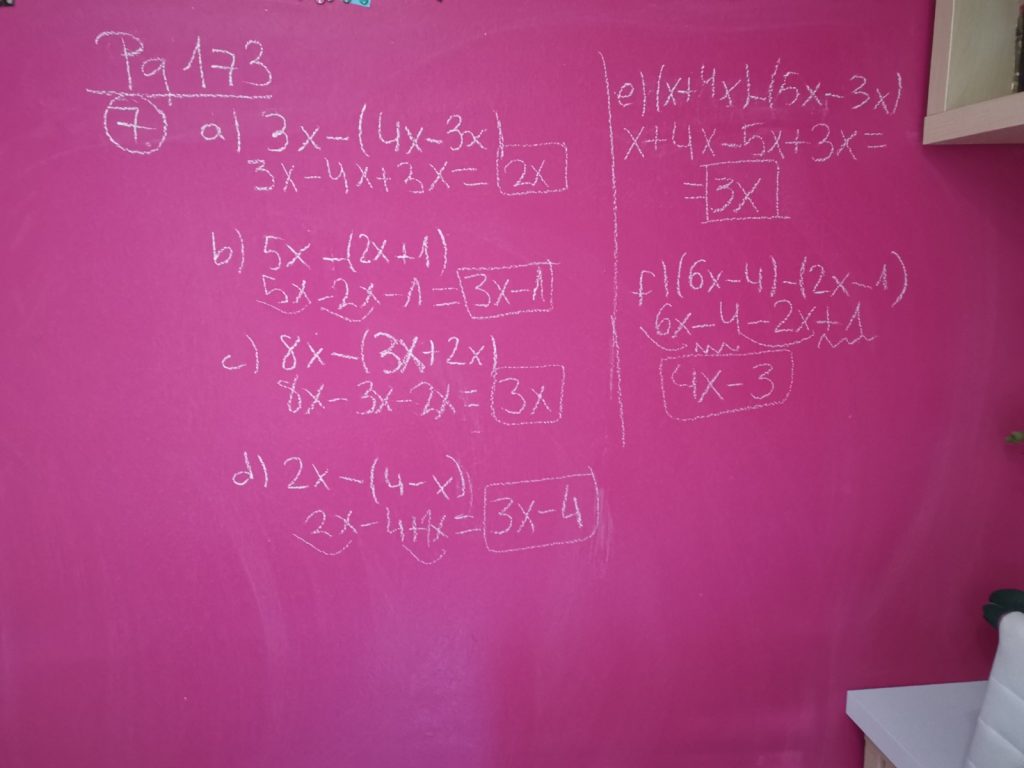 Pg 173
7 a) 3x-(4x-3x)
3x-4x+3x= 2x
b) 5x-(2x+1)
5x-2x-1= 3x-1
c) 8x-(3x+2x)
8x-3x-2x= 3x
d) 2x-(4-x)
2x-4+1x= 3x-4
e) (x+4x)-(5x-3x)
x+4x-5x+3x=
= 3x
f) (6x-4)-(2x-1)
6x-4-2x+1
4x-3